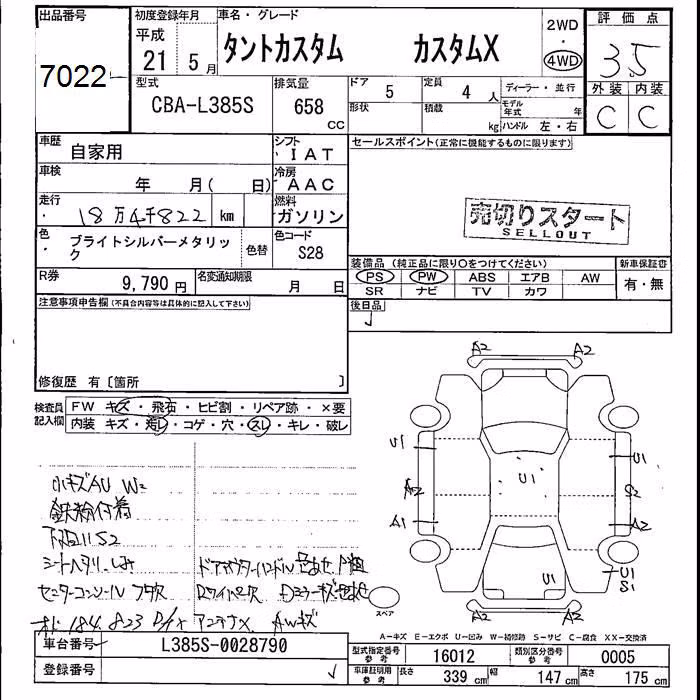 出品番号
7022
初度登録年月
平成
21 5月
車名・グレード
タントカスタム カスタムX
2WD
・
4WD
評価点
3.5
外装 内装
C C
型式
CBA-L385S
排気量
658
CC
ドア
5
定員
4 人
ディーラー・並行
形状
積載
kg
モデル年式 年
ハンドル 左・右
車歴
自家用
シフト
IAT
車検
年 月( 日)
冷房
AAC
走行
・
18万4千822 km
燃料
ガソリン
色
・
ブライトシルバーメタリック
色替
色コード
S28
R券
9,790円
名変通知期限
月 日
セールスポイント(正常に機能するものに限ります)
売切りスタート
SELLOUT
装備品(純正品に限り○をつけてください)
新車保証書
PS PW ABS エアB AW
有・無
SR ナビ TV カワ
後日品
注意事項申告欄(不具合内容等は具体的に記入して下さい)
修復歴 有〔箇所 〕
検査員記入欄
FW キズ・飛石・ヒビ割・リペア跡・×要
内装 キズ・汚レ・コゲ・穴・スレ・キレ・破レ
小キズAU W2
鉄粉付着
下回りS2
シートヘタリ、しみ
センターコンソールフタ欠
アンテナX AWキズ
A2 A2
U1
A2
A1
U1
U1
S2
A2
U1
U1
S1
A2 A2
スペア
A-キズ E-エクボ U-凹み W-補修跡 S-サビ C-腐食 XX-交換済
車台番号
L385S-0028790
登録番号
型式指定番号
参考
16012
類別区分番号
参考
0005
車庫証明用
参考
長さ 339 cm 幅 147 cm 高さ 175 cm